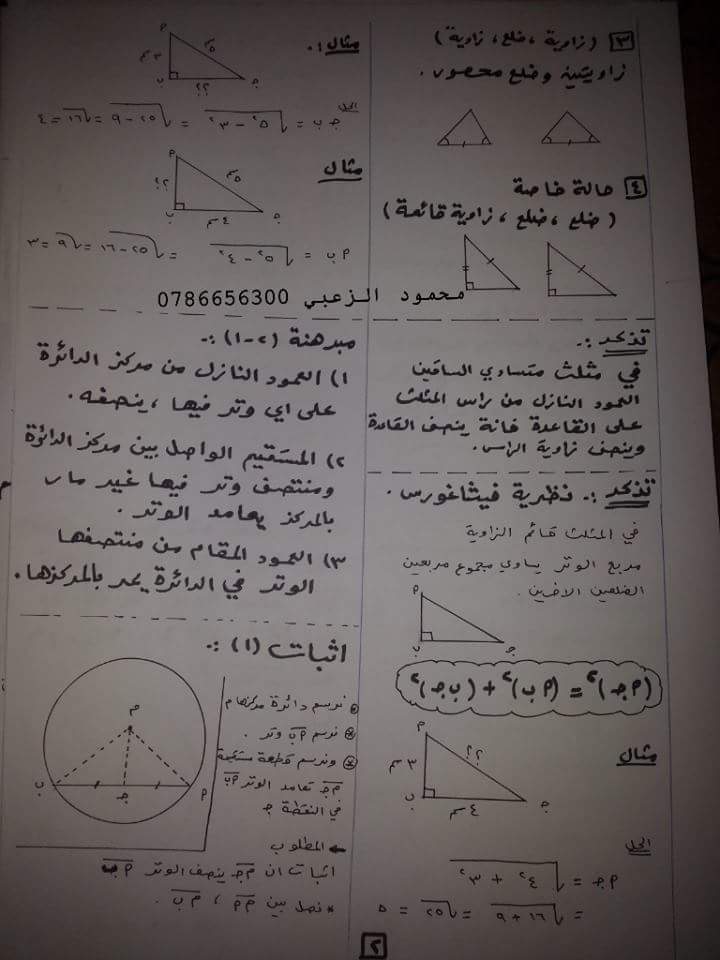 ٣ (زاوية ، ضلع ، زاوية)
زاويتين وضلع محصور .
٤ حالة خاصة
(ضلع ، ضلع ، زاوية قائمة)
تذكر :.
في مثلث متساوي الساقين
العمود النازل من راس المثلث
على القاعدة فانة ينصف القاعدة
وينصف زاوية الراس.
تذكر :. نظرية فيثاغورس .
في المثلث قائم الزاوية
مربع الوتر يساوي مجموع مربعين
الضلعين الاخرين .
م
ب
جـ
(م جـ)² = (م ب)² + (ب جـ)²
مثال
م
٣ سم
؟؟
ب
٤ سم
جـ
الحل
م جـ = √٤² + ٣²
= √١٦ + ٩ = √٢٥ = ٥
مثال :.
م
٣ سم
٥
ب
؟؟
جـ
الحل
جـ ب = √٥² - ٣² = √٢٥ - ٩ = √١٦ = ٤
مثال
م
؟؟
٥
ب
٤ سم
جـ
م ب = √٥² - ٤² = √٢٥ - ١٦ = √٩ = ٣
محمود الزعبي 0786656300
مبرهنة (٢-١) :.
١) العمود النازل من مركز الدائرة
على اي وتر فيها ، ينصفه .
٢) المستقيم الواصل بين مركز الدائرة
ومنتصف وتر فيها غير مار
بالمركز يعامد الوتر .
٣) العمود المقام من منتصفها
الوتر في الدائرة يمر بالمركزها .
اثبات (١) :.
نرسم دائرة مركزها م
نرسم م ب وتر .
ونرسم قطعة مستقيمة
م جـ تعامد الوتر م ب
في النقطة جـ
المطلوب
اثبات ان م جـ ينصف الوتر م ب
* نصل بين م م ، م ب .
م
ب
جـ
م
٢